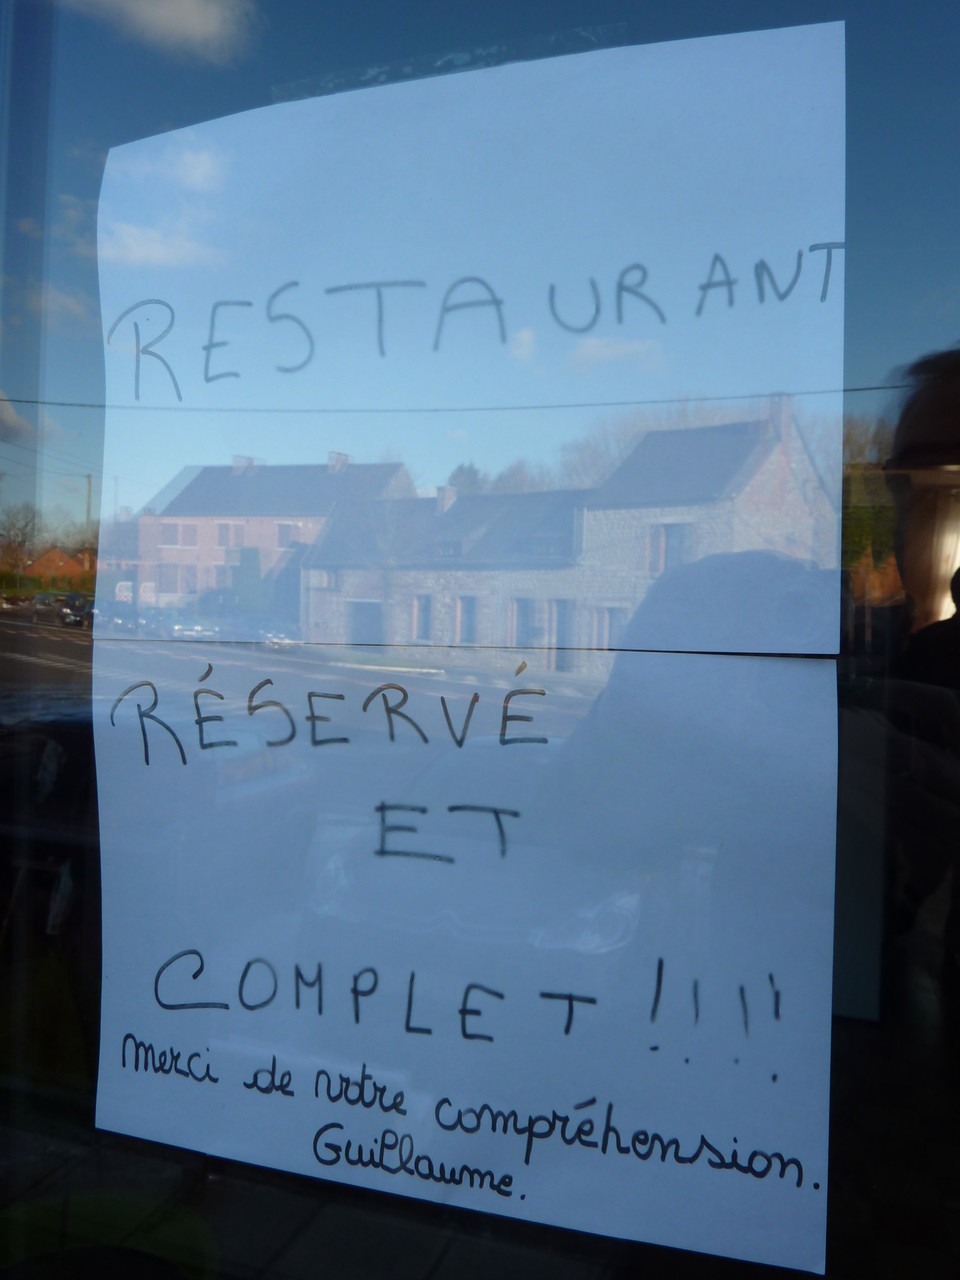 RESTAURANT
RÉSERVÉ
ET
COMPLET !!!!
Merci de votre compréhension.
Guillaume.